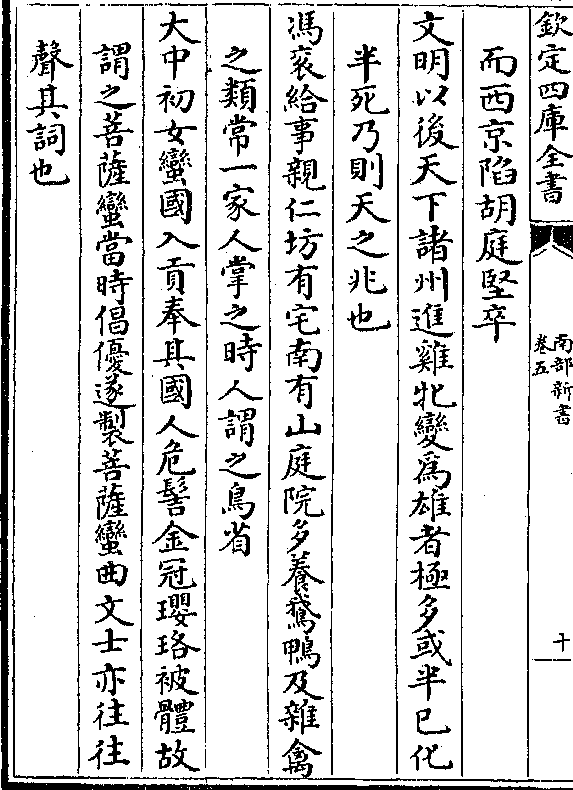 欽定四庫全書
南部新書
卷五
十
而西京陷胡庭堅卒
文明以後天下諸州進雞牝變為雄者極多或半已化
半死乃則天之兆也
馮袞給事親仁坊有宅南有山庭院多養鵞鴨及雜禽
之類常一家人掌之時人謂之鳥省
大中初女蠻國入貢奉其國人危髻金冠瓔珞被體故
謂之菩薩蠻當時倡優遂製菩薩蠻曲文士亦往往
聲其詞也